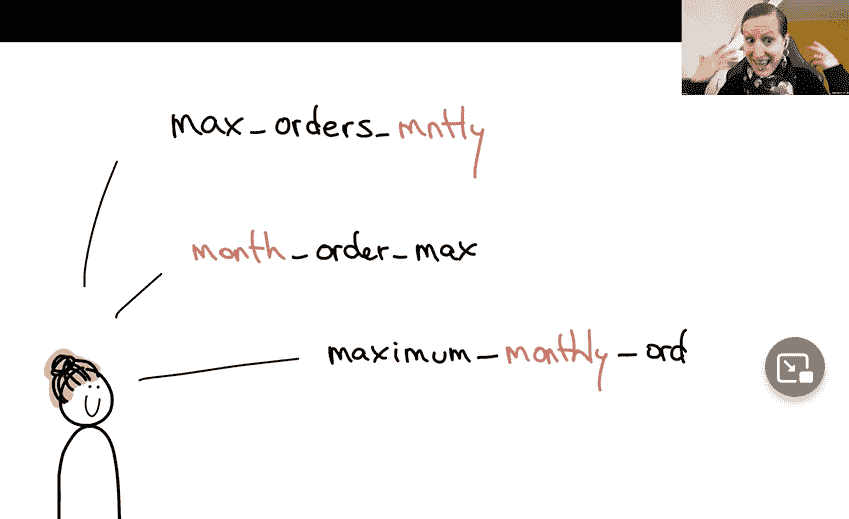 max_orders_mntly
month_order_max
maximum_monthly_ord